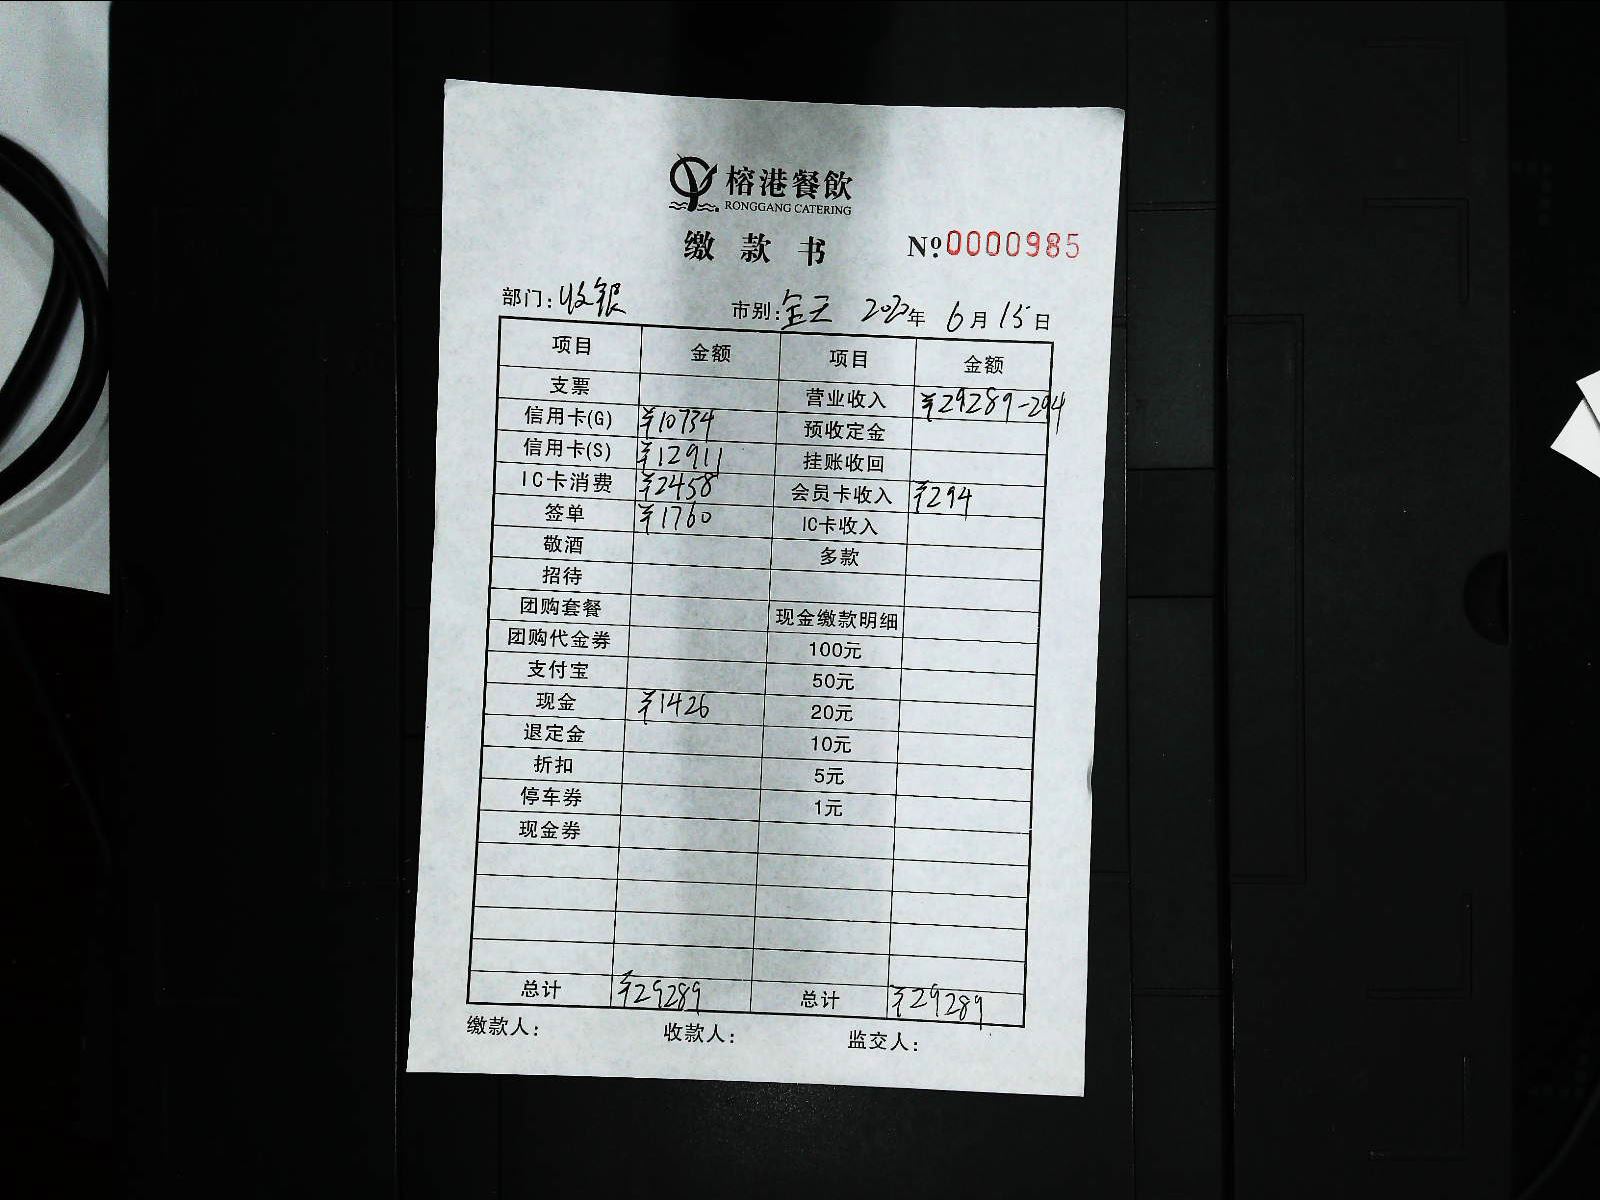 榕港餐飲
RONGGANG CATERING
缴款书 №0000985
部门:收银 市别:全天 2020年 6月15日
项目 金额 项目 金额
支票 营业收入 ¥29289-294
信用卡(G) ¥10734 预收定金
信用卡(S) ¥12911 挂账收回
IC卡消费 ¥2458 会员卡收入 ¥294
签单 ¥1760 IC卡收入
敬酒 多款
招待
团购套餐 现金缴款明细
团购代金券 100元
支付宝 50元
现金 ¥1426 20元
退定金 10元
折扣 5元
停车券 1元
现金券
总计 ¥29289 总计 ¥29289
缴款人: 收款人: 监交人: